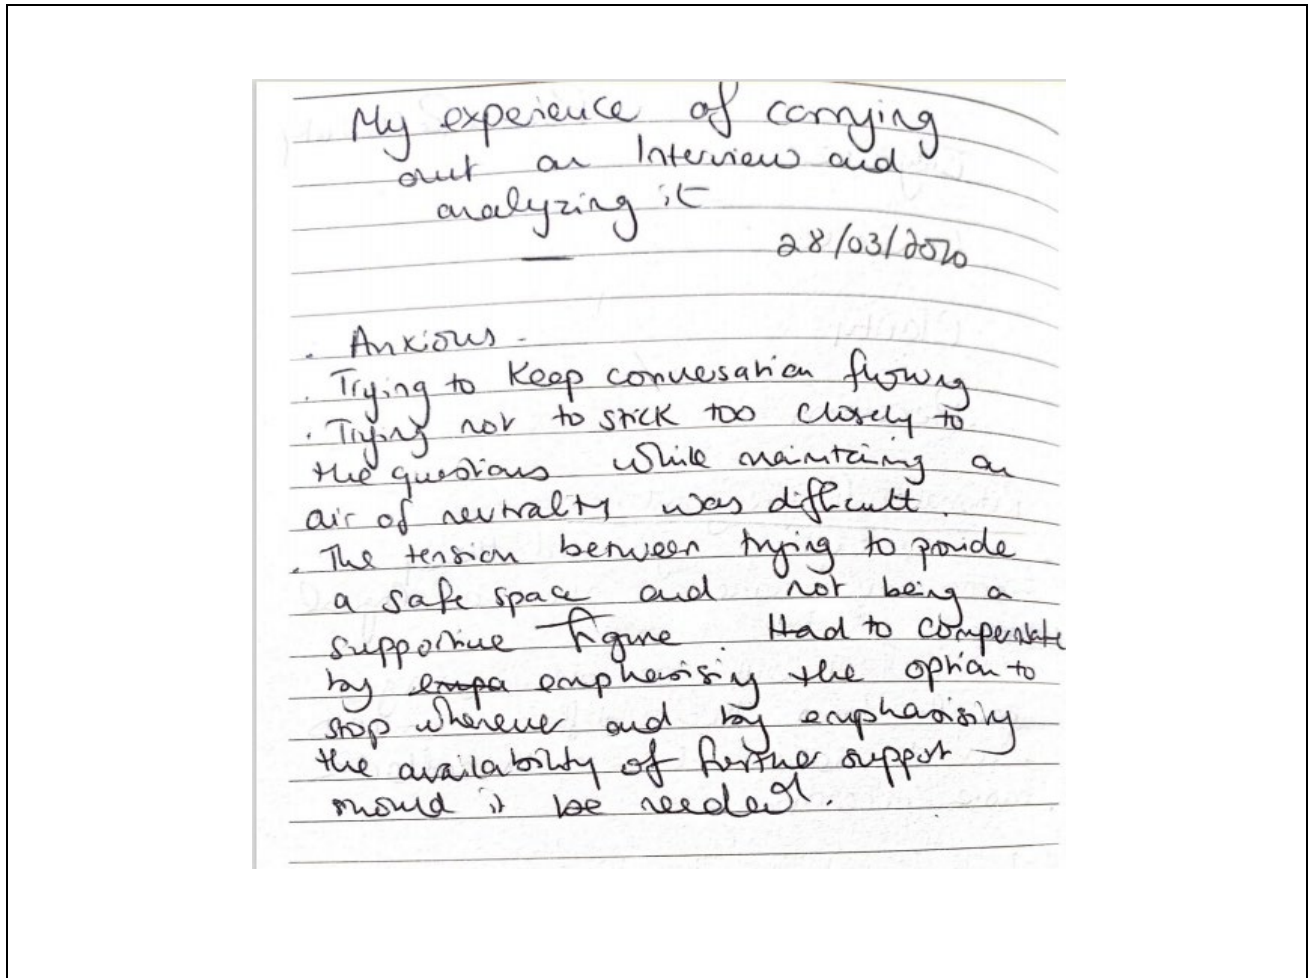 My experience of carrying
out an Interview and
analyzing it
28/03/2020
. Anxious -
. Trying to keep conversation flowing
. Trying not to stick too closely to
the questions while maintaining an
air of neutrality was difficult.
. The tension between trying to provide
a safe space and not being a
supportive figure. Had to compensate
by empa emphasising the option to
stop whenever and by emphasising
the availability of further support
should it be needed.